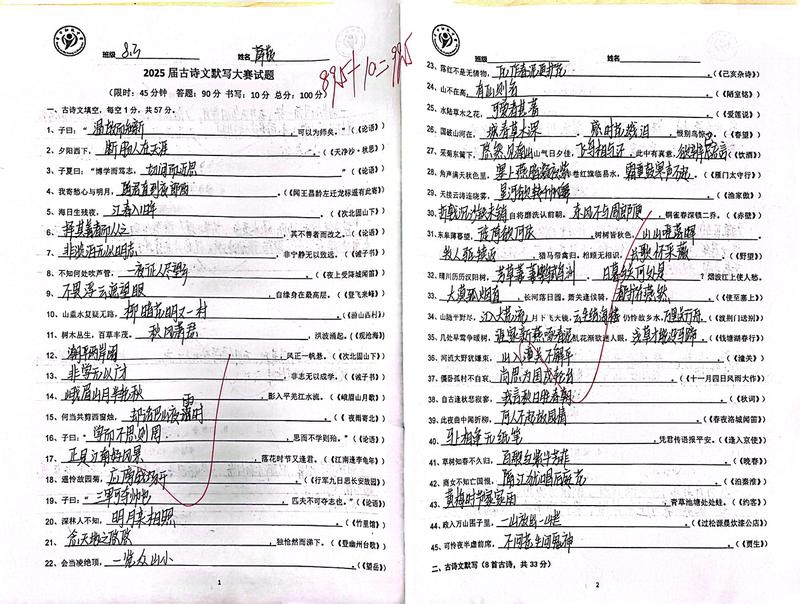 班级 8.3 姓名
2025 届古诗文默写大赛试题
89.5+10=99.5
(限时：45分钟 答题：90分 书写：10分 总分：100分)
一、古诗文填空，每空1分，共57分。
1、子曰：“温故而知新，可以为师矣。”(《论语》)
2、夕阳西下，断肠人在天涯。(《天净沙·秋思》)
3、子夏曰：“博学而笃志，切问而近思 ”(《论语》)
4、我寄愁心与明月，随君直到夜郎西(《闻王昌龄左迁龙标遥有此寄》)
5、海日生残夜，江春入旧年。(《次北固山下》)
6、择其善者而从之，其不善者而改之。(《论语》)
7、非淡泊无以明志，非宁静无以致远。(《诫子书》)
8、不知何处吹芦管，一夜征人尽望乡。(《夜上受降城闻笛》)
9、不畏浮云遮望眼，自缘身在最高层。(《登飞来峰》)
10、山重水复疑无路，柳暗花明又一村。(《游山西村》)
11、树木丛生，百草丰茂。秋风萧瑟，洪波涌起。(《观沧海》)
12、潮平两岸阔，风正一帆悬。(《次北固山下》)
13、非学无以广才，非志无以成学。(《诫子书》)
14、峨眉山月半轮秋，影入平羌江水流。(《峨眉山月歌》)
15、何当共剪西窗烛，却话巴山夜雨时。(《夜雨寄北》)
16、子曰：“学而不思则罔，思而不学则殆。”(《论语》)
17、正是江南好风景，落花时节又逢君。(《江南逢李龟年》)
18、遥怜故园菊，应傍战场开。(《行军九日思长安故园》)
19、子曰：“三军可夺帅也，匹夫不可夺志也。”(《论语》)
20、深林人不知，明月来相照。(《竹里馆》)
21、念天地之悠悠，独怆然而涕下。(《登幽州台歌》)
22、会当凌绝顶，一览众山小。(《望岳》)
1
班级 姓名
23、落红不是无情物，化作春泥更护花。(《己亥杂诗》)
24、山不在高，有仙则名。(《陋室铭》)
25、水陆草木之花，可爱者甚蕃。(《爱莲说》)
26、国破山河在，城春草木深。感时花溅泪，恨别鸟惊心。(《春望》)
27、采菊东篱下，悠然见南山。山气日夕佳，飞鸟相与还。此中有真意，欲辨已忘言。(《饮酒》)
28、角声满天秋色里，塞上燕脂凝夜紫。半卷红旗临易水，霜重鼓寒声不起。(《雁门太守行》)
29、天接云涛连晓雾，星河欲转千帆舞。(《渔家傲》)
30、折戟沉沙铁未销，自将磨洗认前朝。东风不与周郎便，铜雀春深锁二乔。(《赤壁》)
31、东皋薄暮望，徙倚欲何依。树树皆秋色，山山唯落晖。
牧人驱犊返，猎马带禽归。相顾无相识，长歌怀采薇。(《野望》)
32、晴川历历汉阳树，芳草萋萋鹦鹉洲。日暮乡关何处是？烟波江上使人愁。
33、大漠孤烟直，长河落日圆。萧关逢候骑，都护在燕然。(《使至塞上》)
34、山随平野尽，江入大荒流。月下飞天镜，云生结海楼。仍怜故乡水，万里送行舟。(《渡荆门送别》)
35、几处早莺争暖树，谁家新燕啄春泥。乱花渐欲迷人眼，浅草才能没马蹄。(《钱塘湖春行》)
36、河流大野犹嫌束，山入潼关不解平。(《潼关》)
37、僵卧孤村不自哀，尚思为国戍轮台。(《十一月四日风雨大作》)
38、自古逢秋悲寂寥，我言秋日胜春朝。(《秋词》)
39、此夜曲中闻折柳，何人不起故园情。(《春夜洛城闻笛》)
40、马上相逢无纸笔，凭君传语报平安。(《逢入京使》)
41、草树知春不久归，百般红紫斗芳菲。(《晚春》)
42、商女不知亡国恨，隔江犹唱后庭花。(《泊秦淮》)
43、黄梅时节家家雨，青草池塘处处蛙。(《约客》)
44、政入万山围子里，一山放出一山拦。(《过松源晨炊漆公店》)
45、可怜夜半虚前席，不问苍生问鬼神。(《贾生》)
二、古诗文默写(8首古诗，共33分)
2